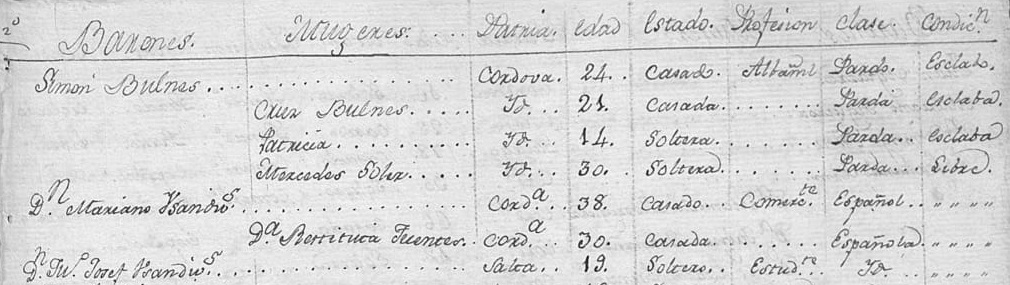 2º Barones. Mugeres. . . . Patria. edad Estado. Profesion clase. Condic.n
Simon Bulnes. Cordova. 24. Casado. Albañil Pardo. Esclabo.
Cruz Bulnes. Yd. 21. Casada. Parda Esclaba.
Patricia Yd. 14. Soltera. Parda. Esclaba
Mercedes Soler. Yd. 30. Soltera. Parda. Libre.
D.n Mariano Usandiv.s Cord.a 38. Casado. Comerc.te Español. " " " "
D.a Restituta Fuentes. Cord.a 30. Casada. Española. " " " "
D.n Josef Usandiv.s Salta. 19. Soltero. Estud.te Yd. " " " "